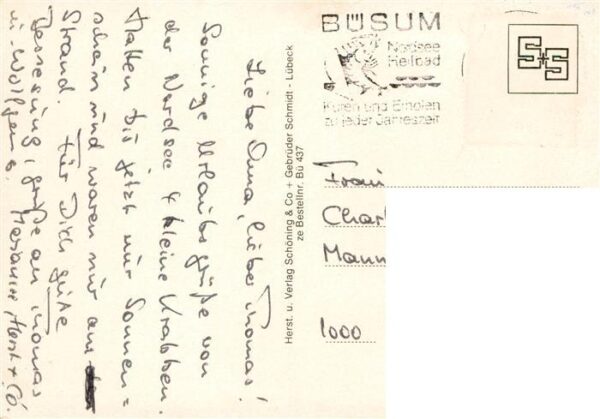 Liebe Oma, lieber Thomas!
Sonnige Urlaubsgrüße von
der Nordsee + kleine Krabben.
Hatten bis jetzt nur Sonnen=
schein und waren nur am
Strand. Für Dich gute
Besserung, Grüße an Thomas
u. Wolfgang.
Horst + Co
Herst. u. Verlag Schöning & Co + Gebrüder Schmidt - Lübeck
ze Bestellnr. Bü 437
BÜSUM
Nordsee
Heilbad
Kuren und Erholen
zu jeder Jahreszeit
S+S
Frau
Char
Mann
1000